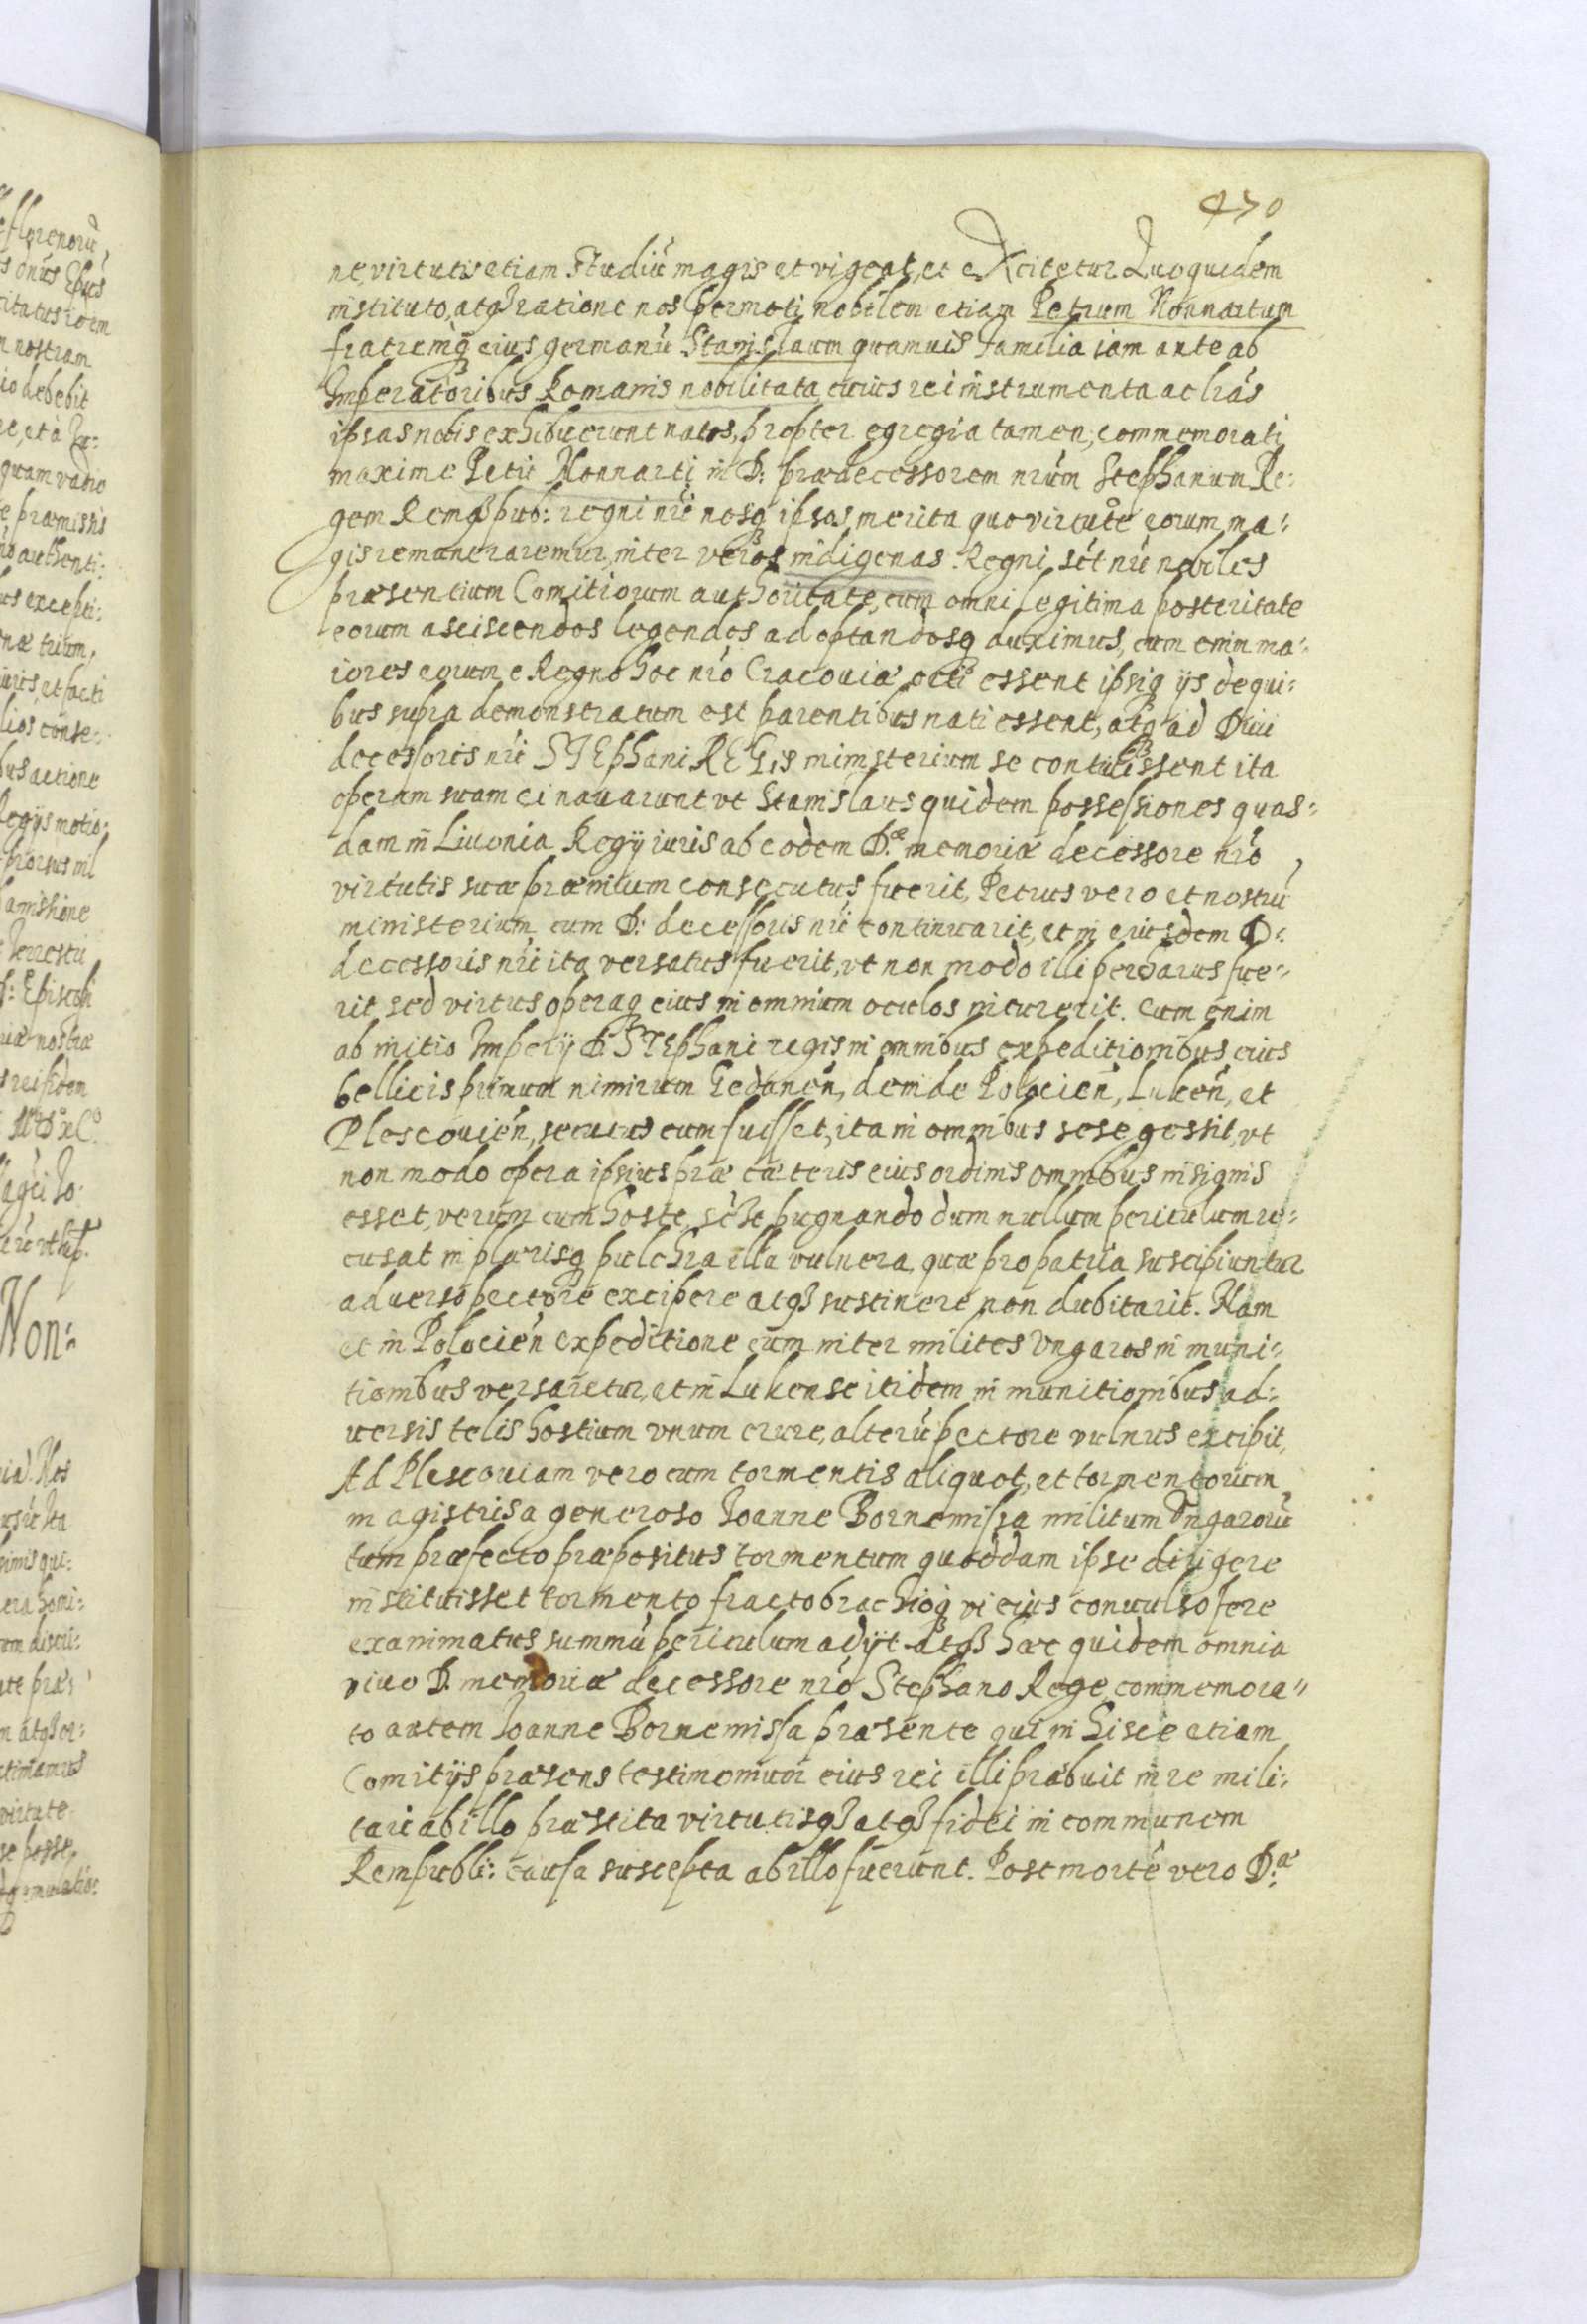 470
ne, virtutis etiam studiũ magis et vigeat, et eXcitetur Quo quidem
instituto, atq3 ratione nos permoti nobilem etiam Petrum Nonnartum
fratremq3 eius germanũ Stanislaum quamuis familia iam ante ab
Imperatoribus Romanis nobilitata cuius rei instrumenta ac lr̃as
ipsas nobis exhibuerunt natos, propter egregia tamen, commemorati
maxime Petri Nonnarti in D: prædecessorem nr̃um Stephanum Re:
gem Remq3 pub: regni nr̃i nosq3 ipsos merita quo virtutẽ eorum ma:
gis remuneraremur, inter veros indigenas Regni, sct nr̃i nobiles
præsentium Comitiorum authoritate, cum omni legitima posteritate
eorum asciscendos legendos adoptandosq3 duximus, cum enim ma:
iores eorum e Regno hoc nr̃o Cracouiæ orti essent ipsiq3 ijs de qui:
bus supra demonstratum est parentibus nati essent, atq3 ad Diui
decessoris nr̃i STEphani REGis ministerium se contulissent ita
operam suam ei nauarunt vt Stanislaus quidem possessiones quas:
dam in Liuonia Regij iuris ab eodem D.æ memoriæ decessore nr̃o,
virtutis suæ præmium consecutus fuerit, Petrus vero et nostrũ
ministerium cum D: decessoris nr̃i continuarit, et in eiusdem D:
decessoris nr̃i ita versatus fuerit, vt non modo illi percharus fue:
rit sed virtus operaq3 eius in omnium oculos incurerit. Cum enim
ab initio Imperij D: STEphani regis in omnibus expeditionibus eius
bellicis primum nimirum Gedaneñ, deinde Polocieñ, Lukeñ, et
Plescouieñ, secutus eum fuisset, ita in omnibus sese gessit, vt
non modo opera ipsius præ cæteris eius ordinis omnibus insignis
esset, verum cum hoste, pugnando dum nullum periculum re:
cusat in plærisq3 pulchra illa vulnera, quæ pro patria suscipiuntur
aduerso pectore excipere atq3 sustinere non dubitarit. Nam
et in Polocieñ expeditione cum inter milites Vngaros in muni:
tionibus versaretur, et in Lukense itidem in munitionibus ad:
uersis telis hostium vnum crure, alterũ pectore vulnus excipit,
Ad Plescouiam vero cum tormentis aliquot, et tormentorum
magistris a generoso Ioanne Bornemissa militum Vngarorũ
tum præfecto præpositus tormentum quoddam ipse dirigere
instituisset tormento fracto brachioq3 vi eius conuulso fere
exanimatus summũ periculum adijt atq3 hæc quidem omnia
viuo D. memoriæ decessore nr̃o Stephano Rege, commemora"
to autem Ioanne Bornemissa præsente qui in hisce etiam
Comitijs præsens testimonium eius rei illi præbuit in re mili:
tari ab illo præstita virtutisq3 atq3 fidei in communem
Rempubli: causa suscepta ab illo fuerunt. Post mortẽ vero D.æ